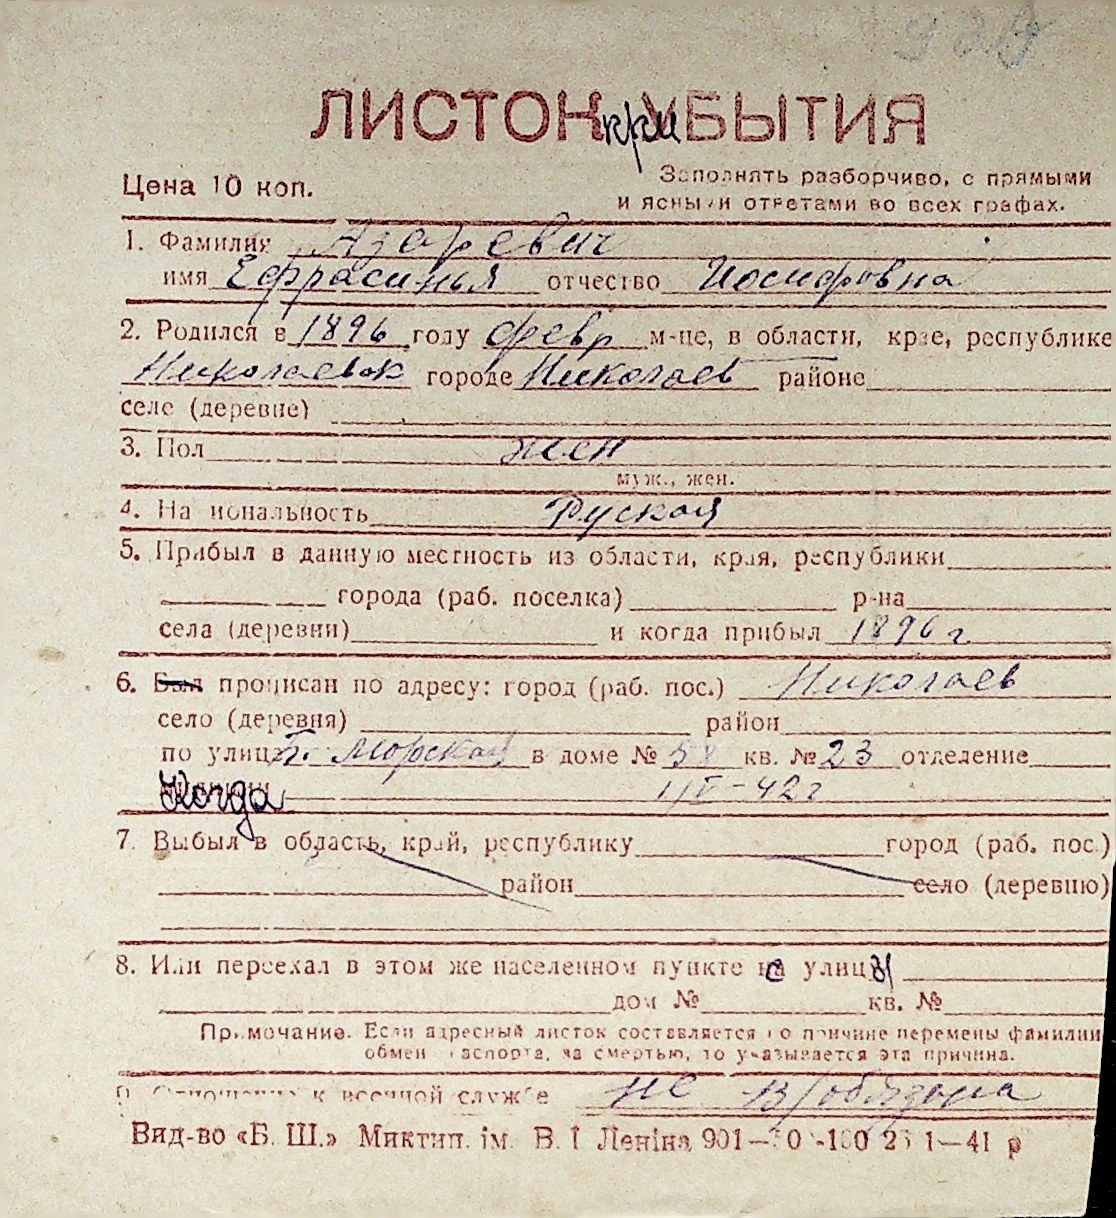 929
ЛИСТОК приБЫТИЯ
Цена 10 коп.
Заполнять разборчиво, с прямыми
и ясными ответами во всех графах.
1. Фамилия Азаревич
имя Ефрасинья отчество Иосифовна
2. Родился в 1896 году февр м-це, в области, крае, республике
Николаевск городе Николаев районе
селе (деревне)
3. Пол жен
муж., жен.
4. Национальность Руская
5. Прибыл в данную местность из области, края, республики
города (раб. поселка) р-на
села (деревни) и когда прибыл 1896 г
6. Был прописан по адресу: город (раб. пос.) Николаев
село (деревня) район
по улице Б. Морская в доме № 58 кв. № 23 отделение
Когда 42 г
7. Выбыл в область, край, республику город (раб. пос.)
район село (деревню)
8. Или переехал в этом же населенном пункте с улицы
дом № кв. №
Примечание. Если адресный листок составляется по причине перемены фамилии
обмен паспорта, за смертью, то указывается эта причина.
9. Отношение к военной службе не в/обязана
Вид-во «Б. Ш.» Миктип. ім. В. І Леніна 901— 1—41 р